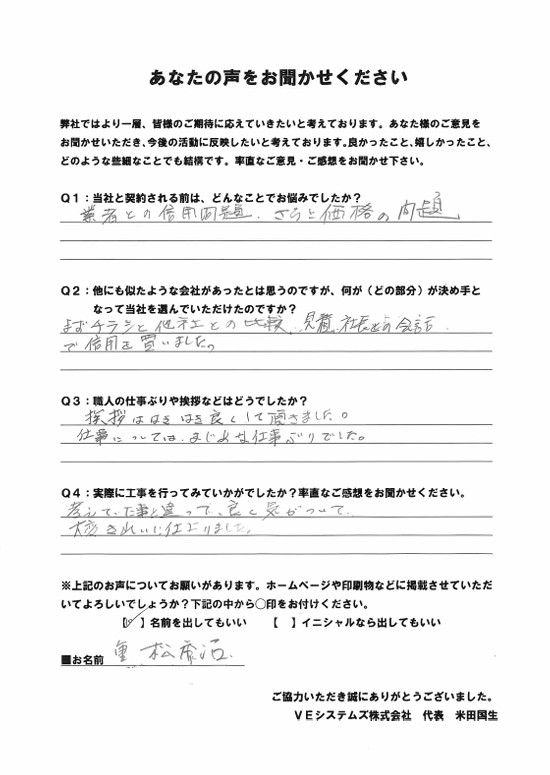 あなたの声をお聞かせください
弊社ではより一層、皆様のご期待に応えていきたいと考えております。あなた様のご意見を
お聞かせいただき、今後の活動に反映したいと考えております。良かったこと、嬉しかったこと、
どのような些細なことでも結構です。率直なご意見・ご感想をお聞かせ下さい。
Q1：当社と契約される前は、どんなことでお悩みでしたか？
業者との信用問題、さらに価格の問題
Q2：他にも似たような会社があったとは思うのですが、何が（どの部分）が決め手と
なって当社を選んでいただけたのですか？
まずチラシと他社との比較、見積、社長との会話
で信用を買いました。
Q3：職人の仕事ぶりや挨拶などはどうでしたか？
挨拶ははきはき良くして頂きました。
仕事については、まじめな仕事ぶりでした。
Q4：実際に工事を行ってみていかがでしたか？率直なご感想をお聞かせください。
考えていた事と違って、良く気がついて
大変きれいに仕上りました。
※上記のお声についてお願いがあります。ホームページや印刷物などに掲載させていただ
いてよろしいでしょうか？下記の中から○印をお付けください。
【✓】名前を出してもいい 【 】イニシャルなら出してもいい
■お名前 重松
ご協力いただき誠にありがとうございました。
VEシステムズ株式会社 代表 米田国生